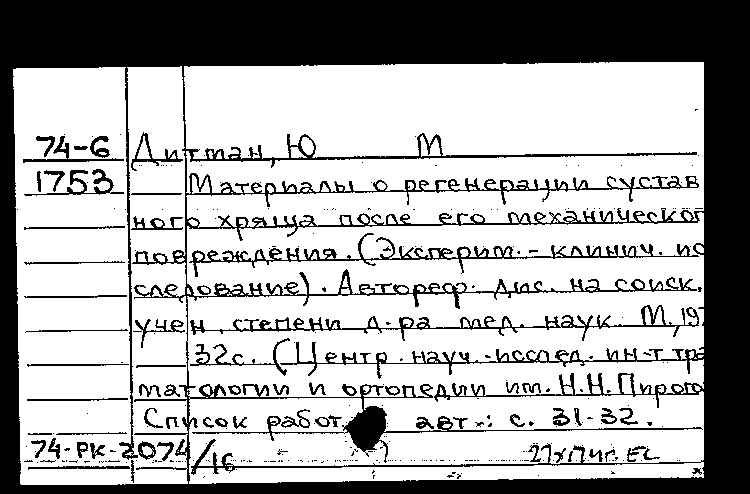 74-6 Дитман, Ю М
1753 Материалы о регенерации сустав
ного хряща после его механическог
повреждения. (Эксперим. - клинич. ис
следование). Автореф. дис. на соиск.
учен. степени д-ра мед. наук. М., 197
32с. (Центр. науч.-исслед. ин-т тра
матологии и ортопедии им. Н.Н. Пирого
Список работ авт.: с. 31-32.
74-РК-2074/16